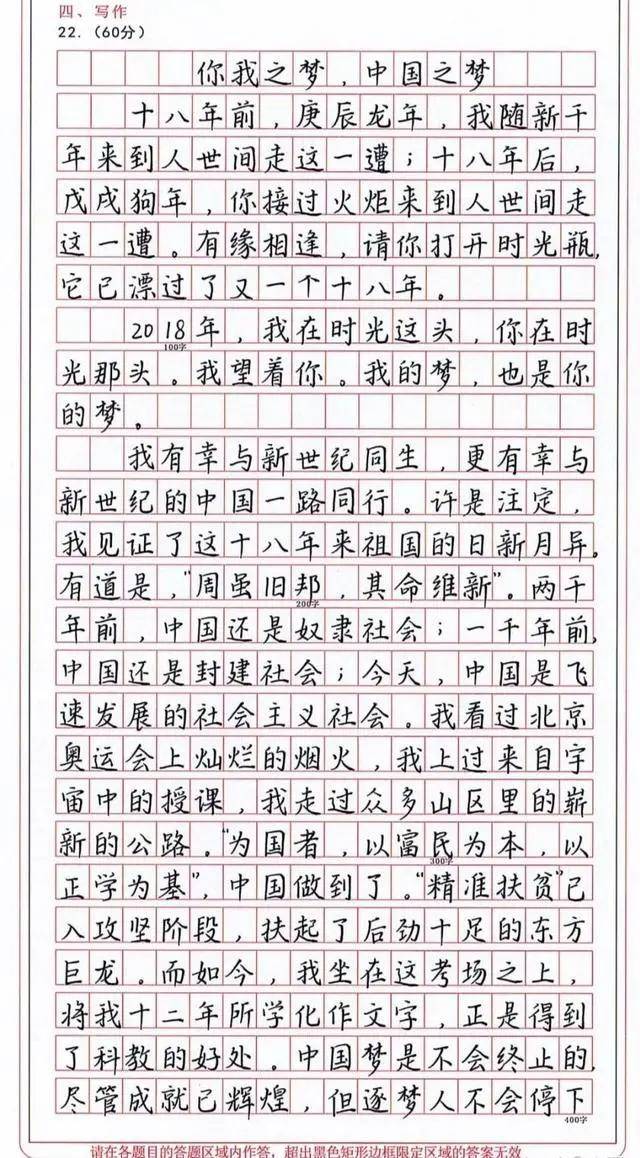 四、写作
22.（60分）
你我之梦，中国之梦
十八年前，庚辰龙年，我随新千
年来到人世间走这一遭；十八年后，
戊戌狗年，你接过火炬来到人世间走
这一遭。有缘相逢，请你打开时光瓶，
它已漂过了又一个十八年。
2018年，我在时光这头，你在时
100字
光那头。我望着你。我的梦，也是你
的梦。
我有幸与新世纪同生，更有幸与
新世纪的中国一路同行。许是注定，
我见证了这十八年来祖国的日新月异。
有道是，“周虽旧邦，其命维新”。两千
200字
年前，中国还是奴隶社会；一千年前，
中国还是封建社会；今天，中国是飞
速发展的社会主义社会。我看过北京
奥运会上灿烂的烟火，我上过来自宇
宙中的授课，我走过众多山区里的崭
新的公路。“为国者，以富民为本，以
300字
正学为基”，中国做到了。“精准扶贫”已
入攻坚阶段，扶起了后劲十足的东方
巨龙。而如今，我坐在这考场之上，
将我十二年所学化作文字，正是得到
了科教的好处。中国梦是不会终止的，
尽管成就已辉煌，但逐梦人不会停下
400字
请在各题目的答题区域内作答，超出黑色矩形边框限定区域的答案无效